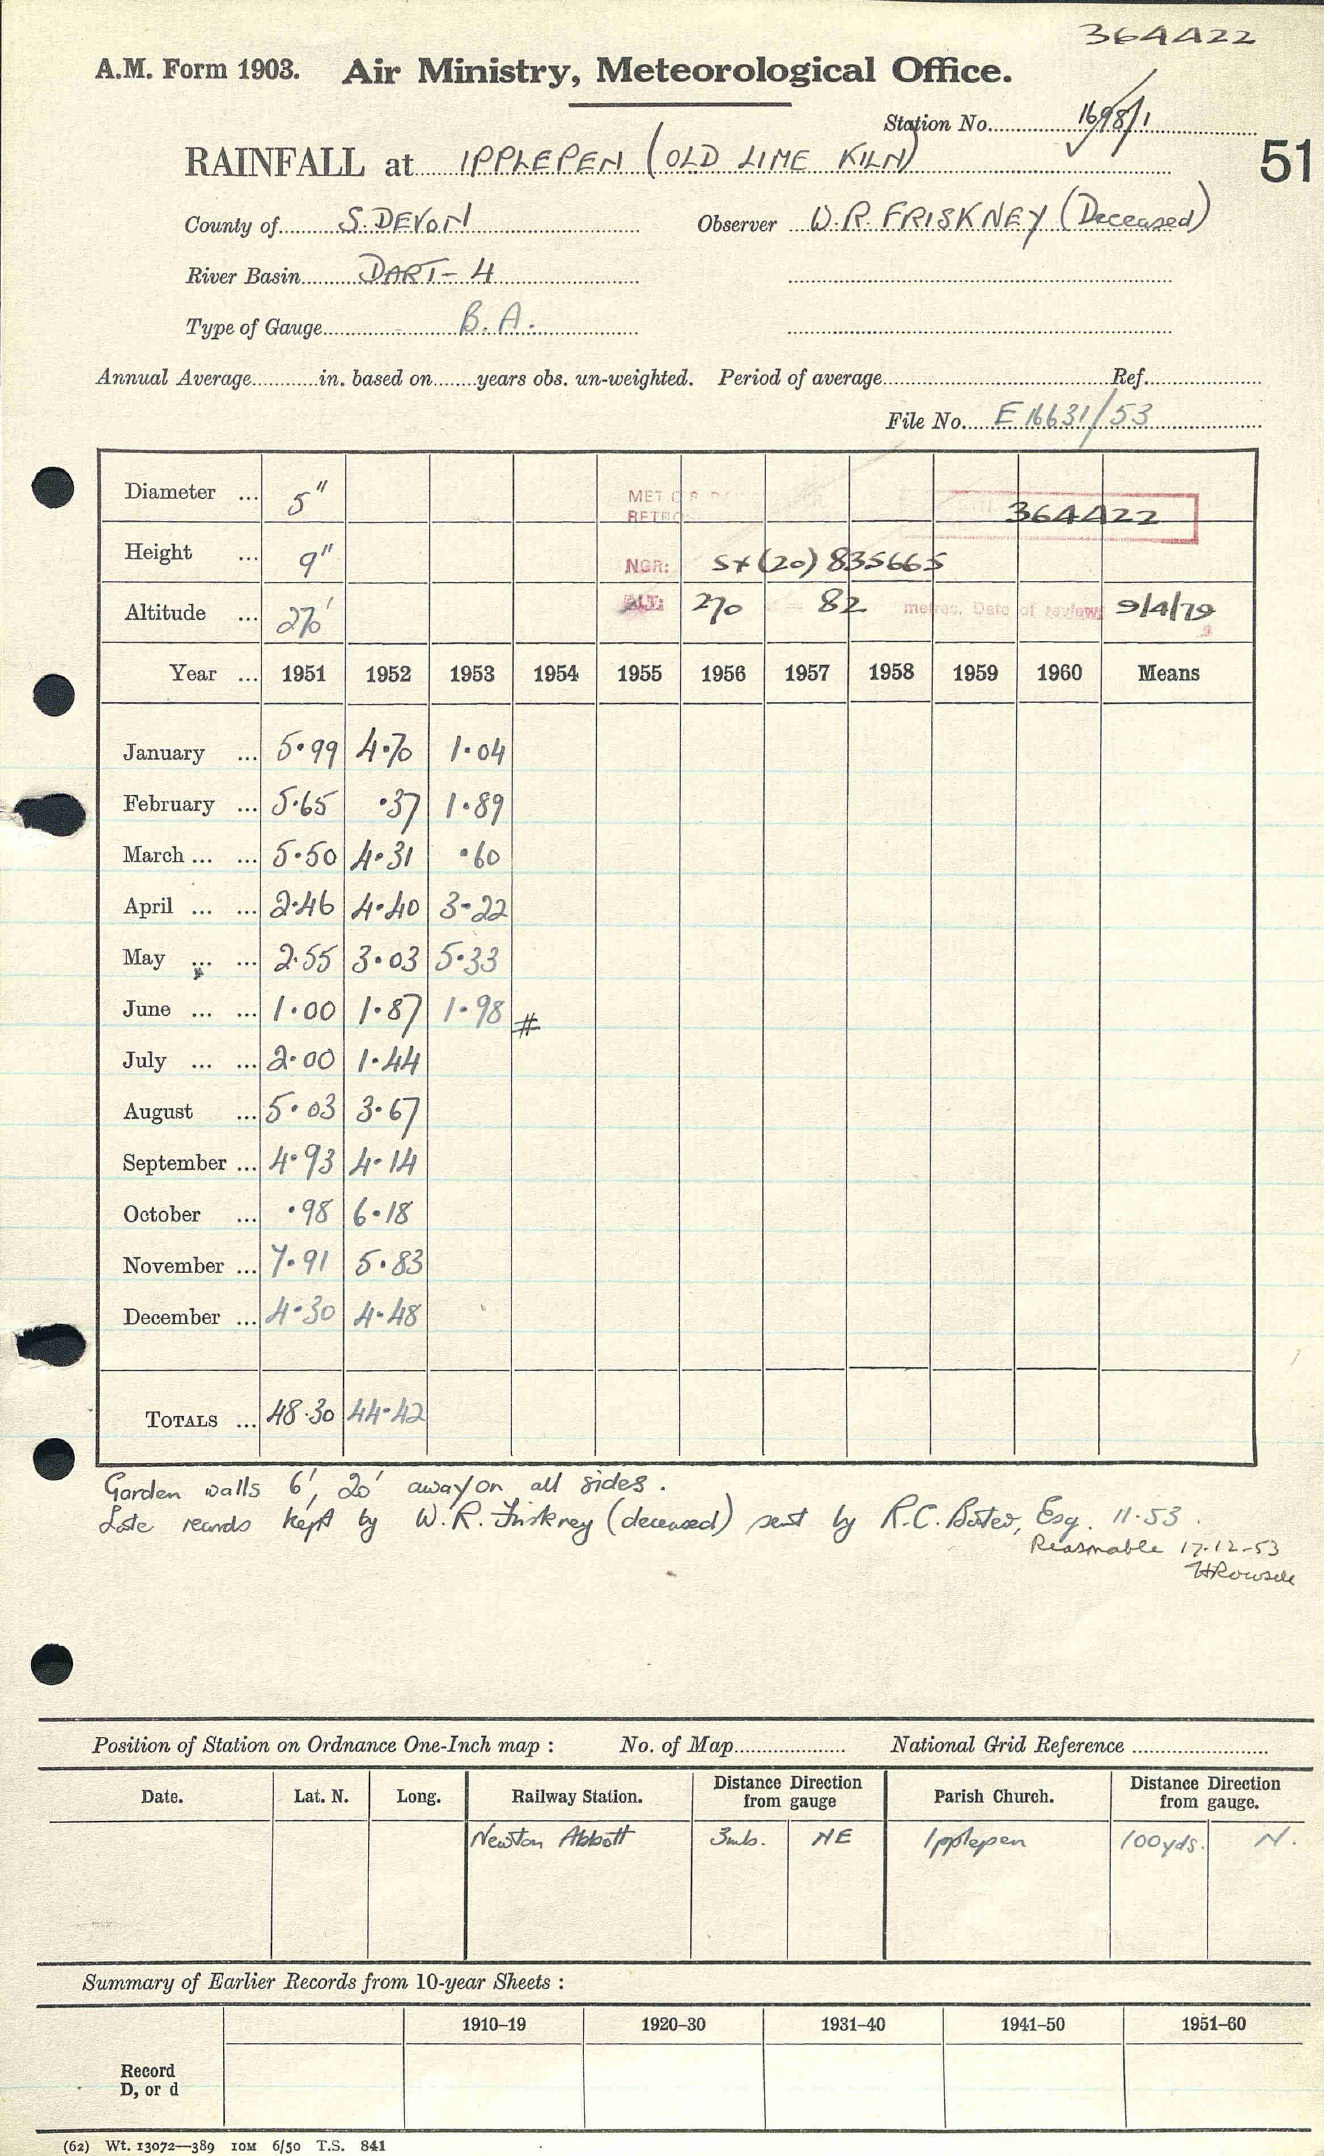 364422
A.M. Form 1903. Air Ministry, Meteorological Office.
Station No. 1698/1
51
RAINFALL at IPPLEPEN (OLD LIME KILN)
County of S. DEVON Observer W.R. FRISKNEY (Deceased)
River Basin DART - 4
Type of Gauge B.A.
Annual Average in. based on years obs. un-weighted. Period of average Ref.
File No. E16631/53
Diameter ... 5"
MET O 8
364422
Height ... 9"
NGR: SX (20) 835665
Altitude ... 270'
ALT: 270 = 82 metres. Date of review: 9/4/79
Year ... 1951 1952 1953 1954 1955 1956 1957 1958 1959 1960 Means
January ... 5.99 4.70 1.04
February ... 5.65 .37 1.89
March ... ... 5.50 4.31 .60
April ... ... 2.46 4.40 3.22
May ... ... 2.55 3.03 5.33
June ... ... 1.00 1.87 1.98 #
July ... ... 2.00 1.44
August ... 5.03 3.67
September ... 4.93 4.14
October ... .98 6.18
November ... 7.91 5.83
December ... 4.30 4.48
TOTALS ... 48.30 44.42
Garden walls 6', 20' away on all sides.
Late records kept by W.R. Friskney (deceased) sent by R.C. Esq. 11.53.
Reasonable 17-12-53
Position of Station on Ordnance One-Inch map : No. of Map National Grid Reference
Date. Lat. N. Long. Railway Station. Distance Direction from gauge Parish Church. Distance Direction from gauge.
Newton Abbott 3mls. NE Ipplepen 100yds. N.
Summary of Earlier Records from 10-year Sheets :
1910–19 1920–30 1931–40 1941–50 1951–60
Record
D, or d
(62) Wt. 13072—389 10M 6/50 T.S. 841